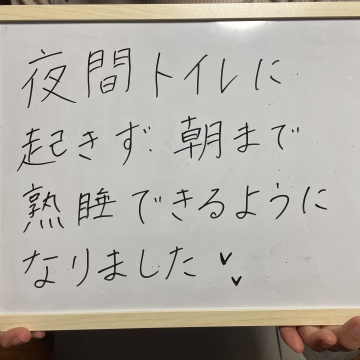 夜間トイレに
起きず朝まで
熟睡できるように
なりました